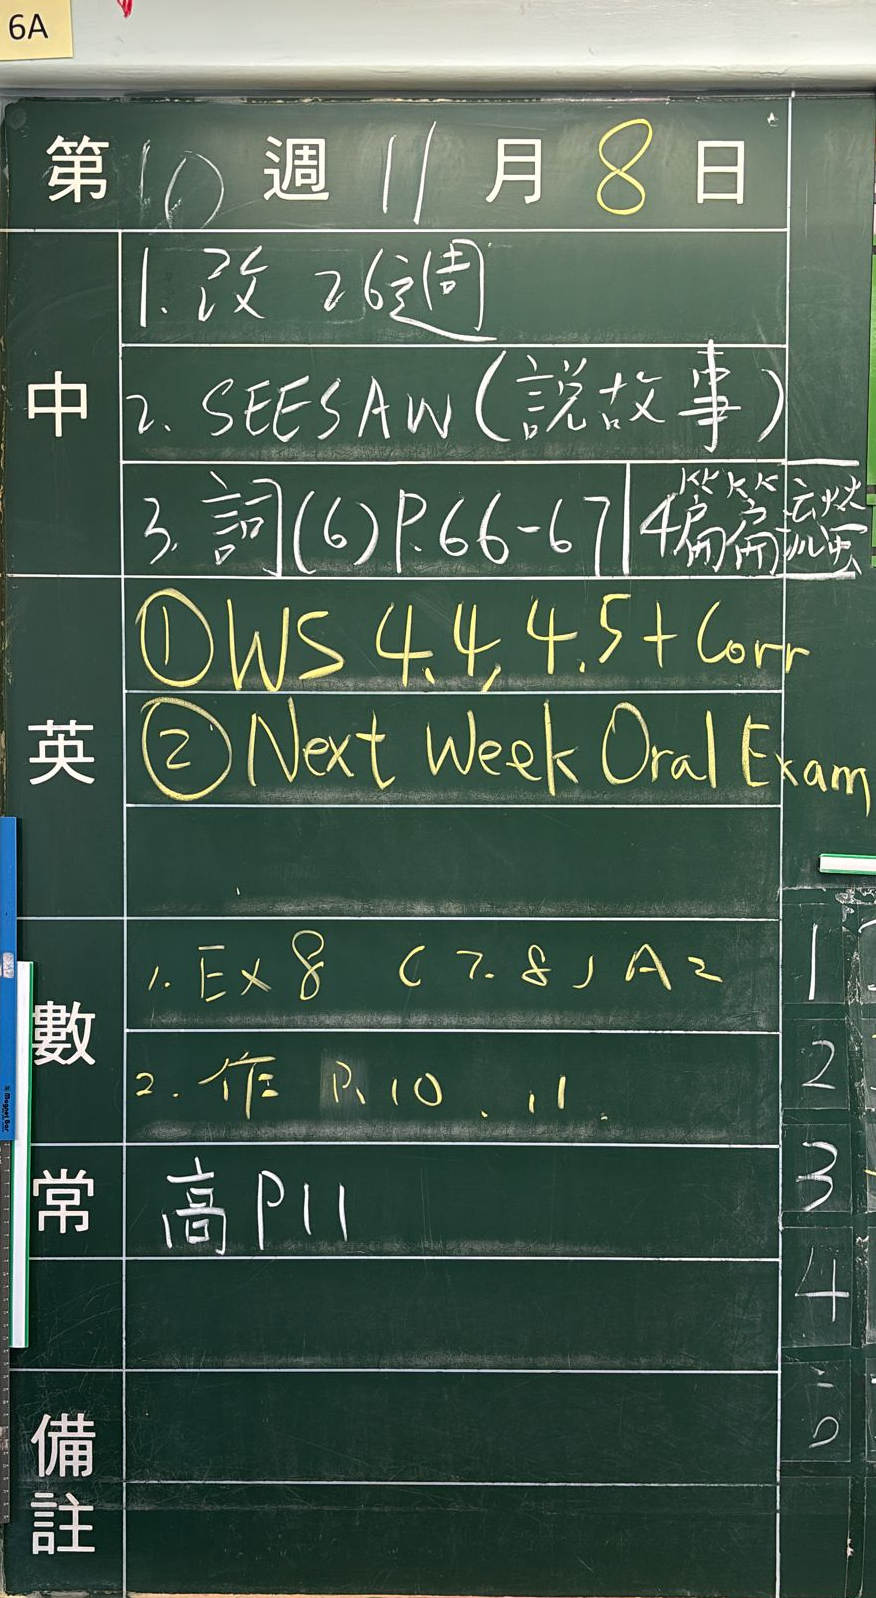 6A
第10週11月8日
中
1. 改 26週
2. SEESAW(說故事)
3. 詞(6)P.66-67
英
①WS 4.4, 4.5 + Corr
②Next Week Oral Exam
數
1. Ex 8 (7.8) A2
2. 作 P.10、11.
常
高P11
備註
1
2
3
4